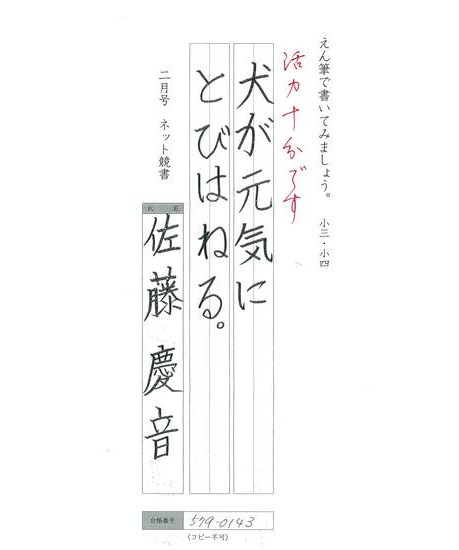 えん筆で書いてみましょう。 小三・小四
活力十分です
犬が元気に
とびはねる。
二月号 ネット競書
氏名
佐藤 慶音
台帳番号 579-0143
(コピー不可)